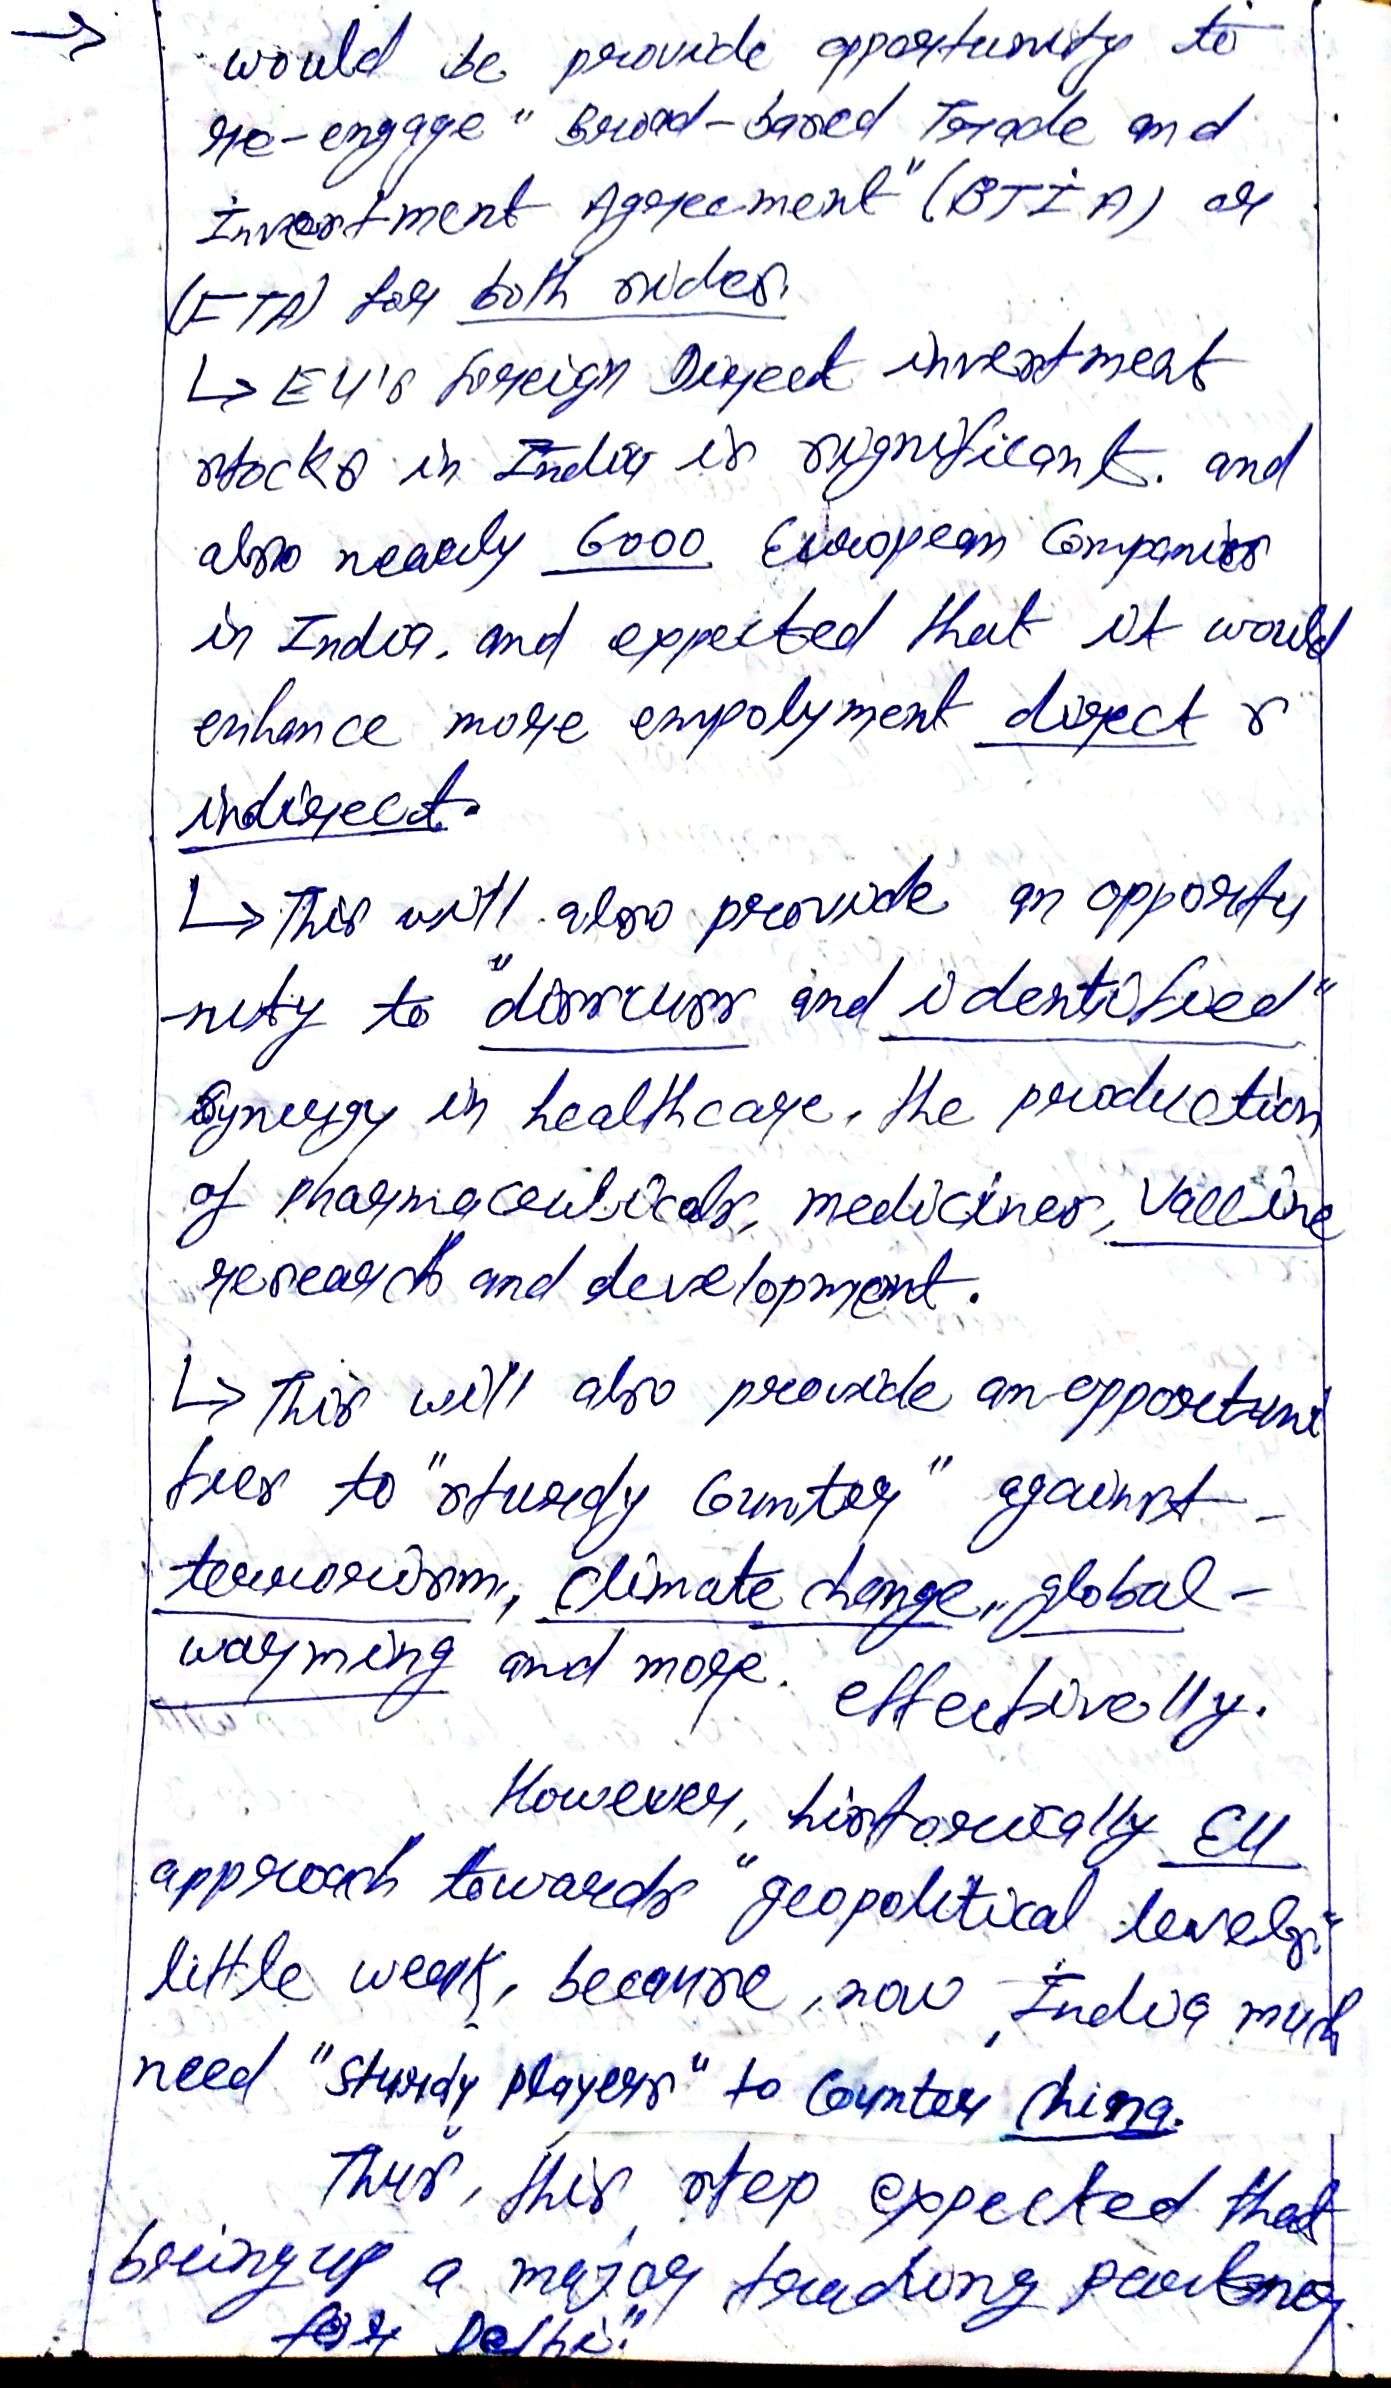 → would be provide opportunity to
re-engage "Broad-based Trade and
Investment Agreement" (BTIA) or
(FTA) for both sides.
↳ EU's foreign Direct investment
stocks in India is significant. and
also nearly 6000 European Companies
in India. and expected that it would
enhance more empolyment direct &
indirect.
↳ This will also provide an opportu
-nity to "discuss and identified"
Synergy in healthcare, the production
of pharmaceuticals, medicines, Vaccine
research and development.
↳ This will also provide an opportuni
ties to "sturdy Counter" against -
terrorism, climate change, global -
warming and more. effectivelly.
However, historically EU
approach towards "geopolitical levels"
little weak, because, now, India much
need "Sturdy players" to Counter China.
Thus, this step expected that
bring up a major trading partner
for Delhi."